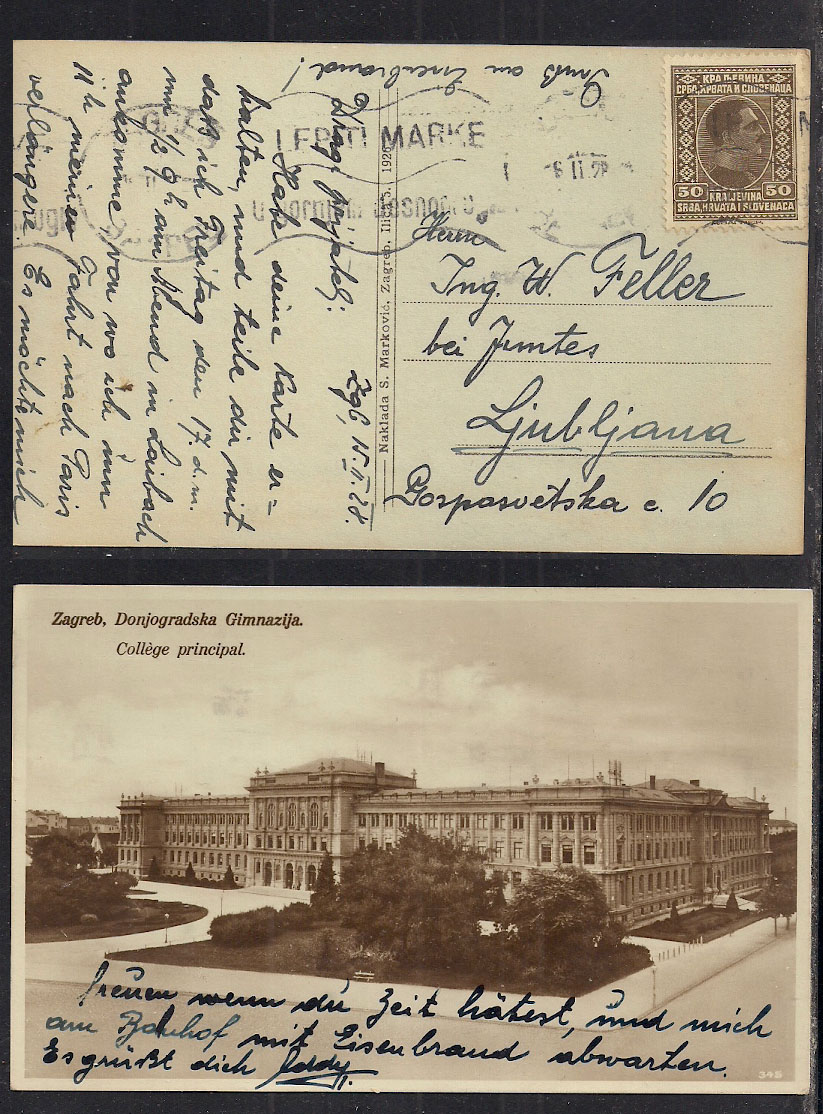 Gruß an Eisenbrand!
КРАЉЕВИНА
СРБА, ХРВАТА И СЛОВЕНАЦА
50 50
KRALJEVINA
SRBA, HRVATA I SLOVENACA
LEPITI MARKE
u gornjem desnom
Herrn
Ing. W. Feller
bei Juntes
Ljubljana
Gosposvetska c. 10
Naklada S. Marković, Zagreb, Ilica 5. 1926
Zgb, 15.II.28.
Dragi prijatelj:
Habe deine Karte er=
halten, und teile dir mit
daß ich Freitag den 17. d. m.
um 1/2 9h am Abend in Laibach
ankomme, von wo ich um
11h meinen Fahrt nach Paris
verlängere. Es möchte mich
Zagreb, Donjogradska Gimnazija.
Collège principal.
freuen wenn du Zeit hätest, und mich
am Bahhof mit Eisenbrand abwarten.
Es grüßt dich
345